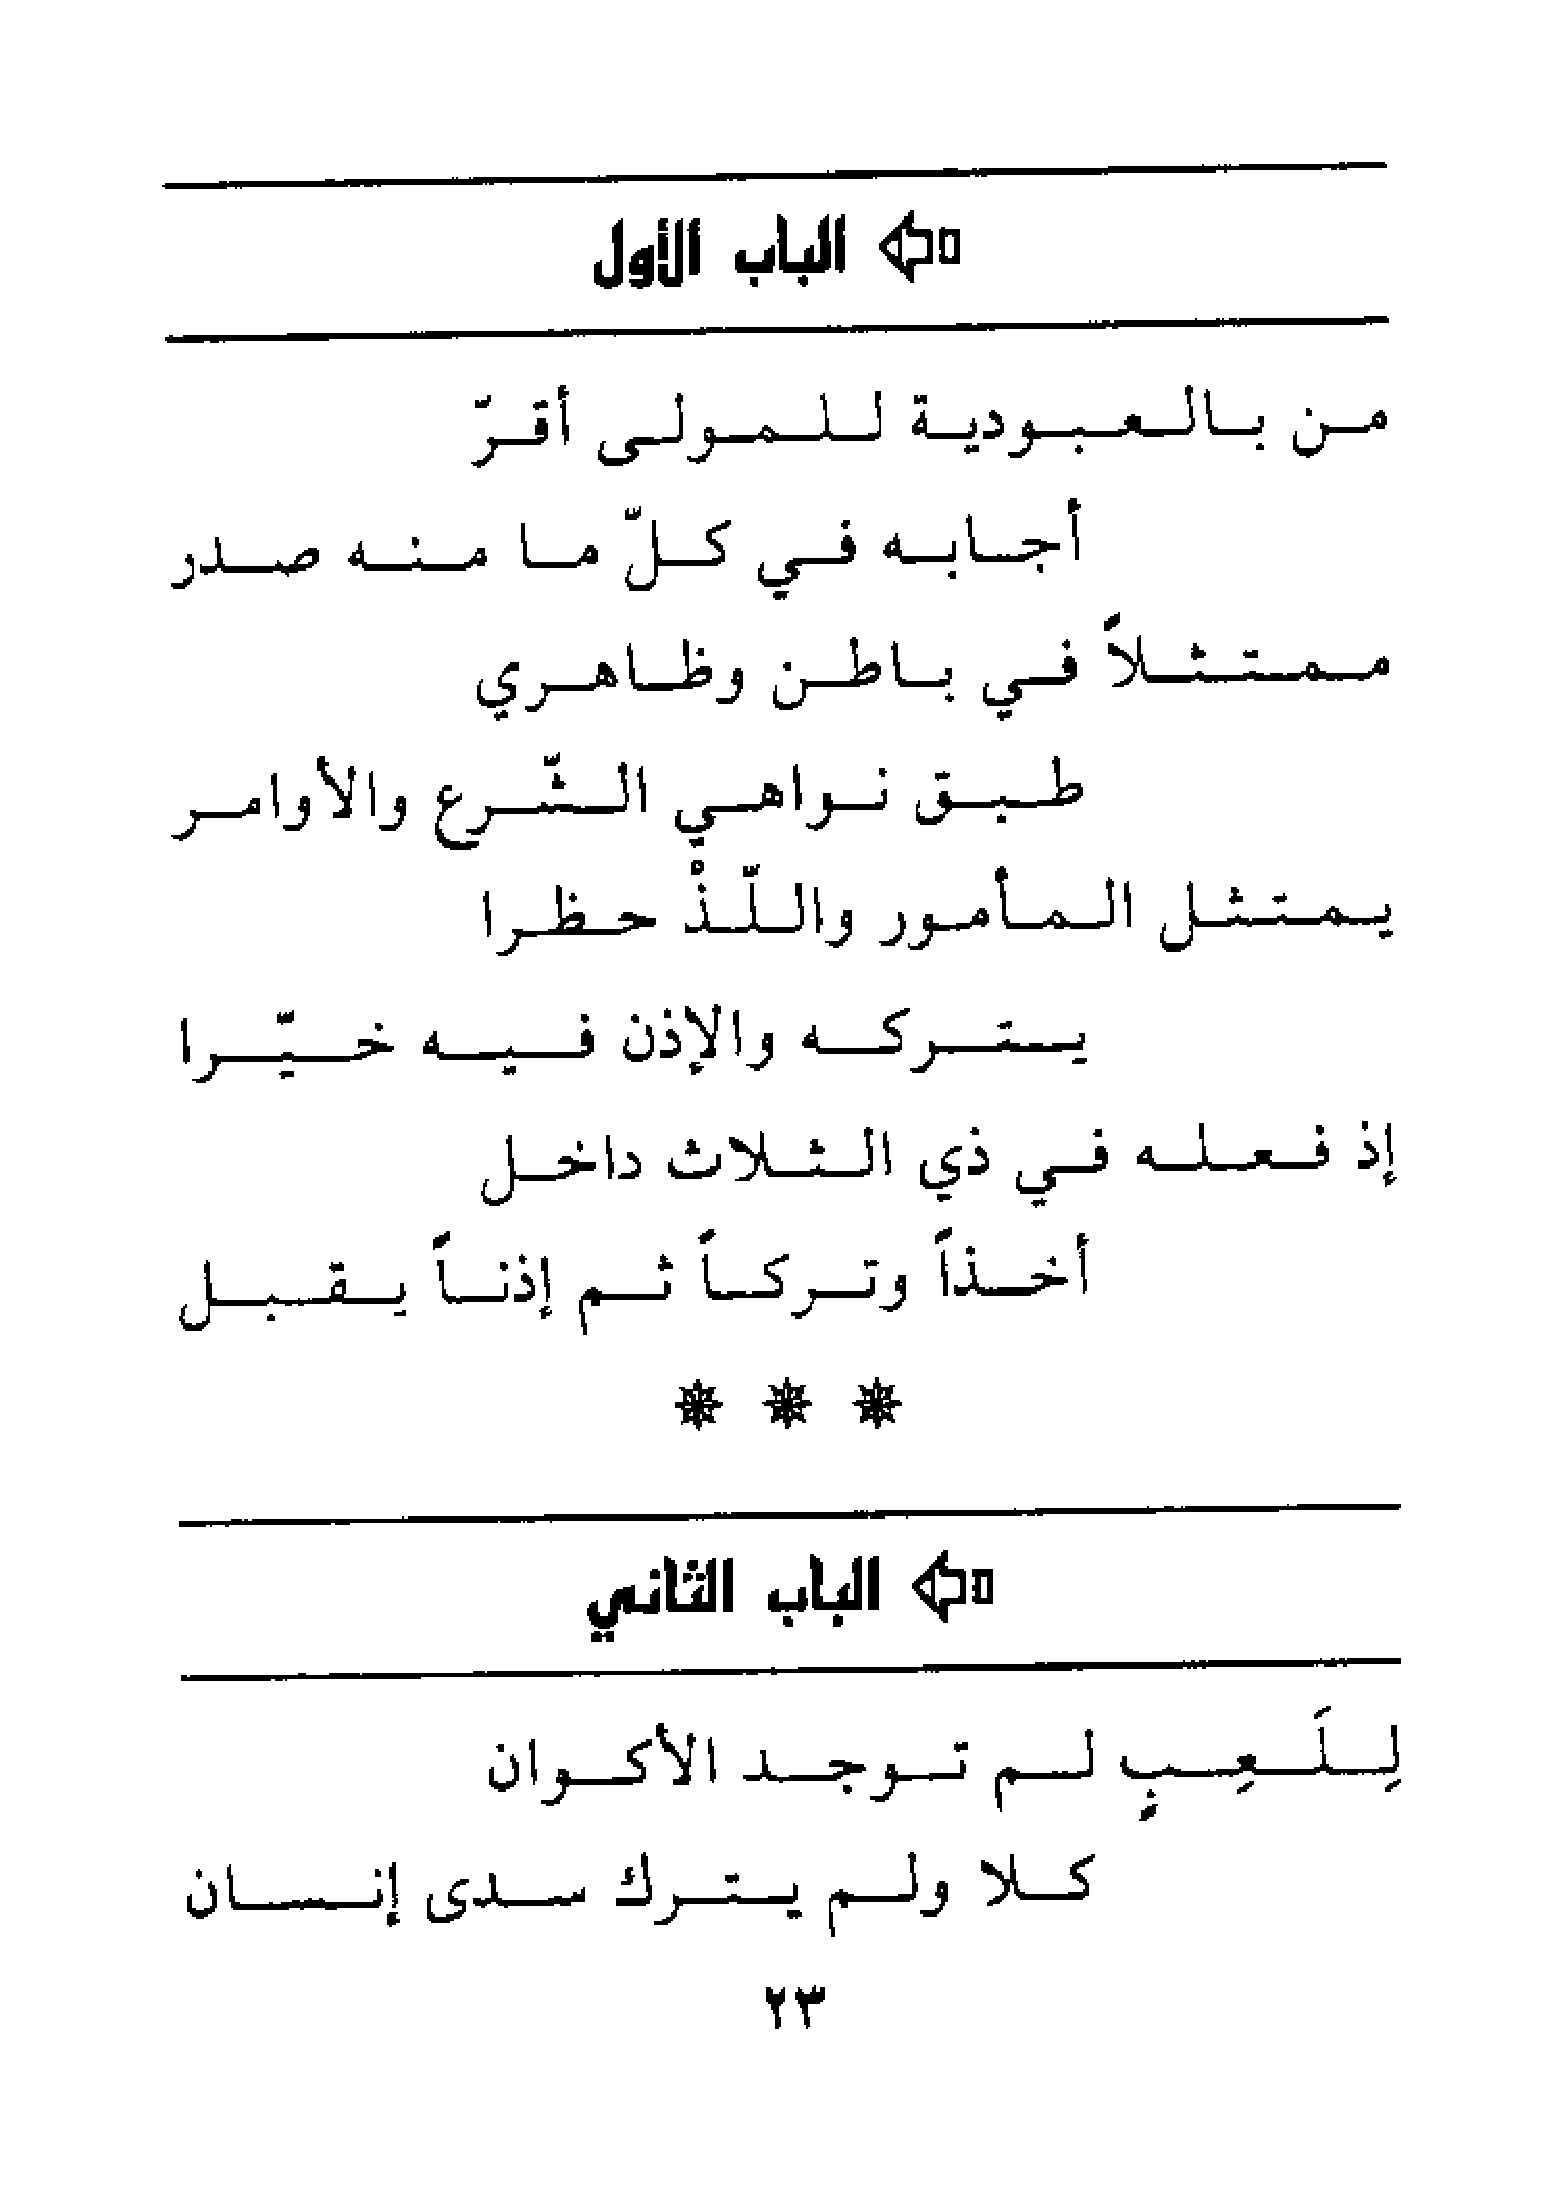 الباب الأول
من بالعبودية للمولى أقرّ
أجابه في كلّ ما منه صدر
ممتثلاً في باطن وظاهري
طبق نواهي الشّرع والأوامر
يمتثل المأمور واللّذْ حظرا
يتركه والإذن فيه خيّرا
إذ فعله في ذي الثلاث داخل
أخذاً وتركاً ثم إذناً يقبل
* * *
الباب الثاني
لِلَعِبٍ لم توجد الأكوان
كلا ولم يترك سدى إنسان
٢٣